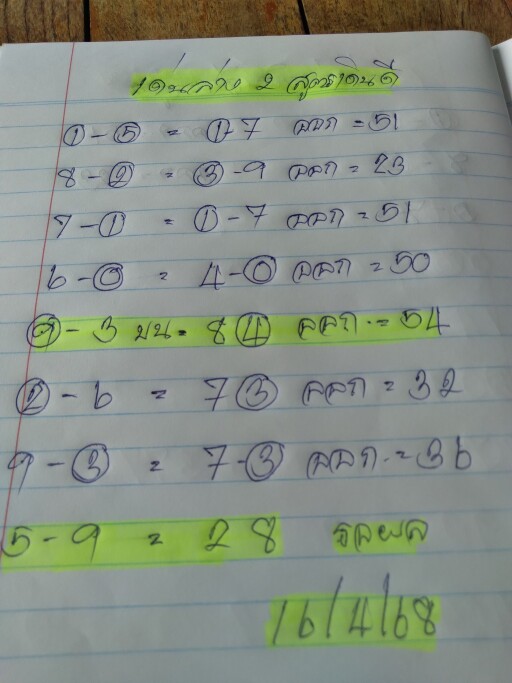 เด่นล่าง 2 สูตรเดินดี
1 - 5 = 1-7 ออก = 51
8 - 2 = 3 - 9 ออก = 23
7 - 1 = 1 - 7 ออก = 51
6 - 0 = 4 - 0 ออก = 50
9 - 3 บน = 8 4 ออก = 54
2 - 6 = 7 3 ออก = 32
9 - 3 = 7 - 3 ออก = 36
5 - 9 = 28 รอผล
16/4/68